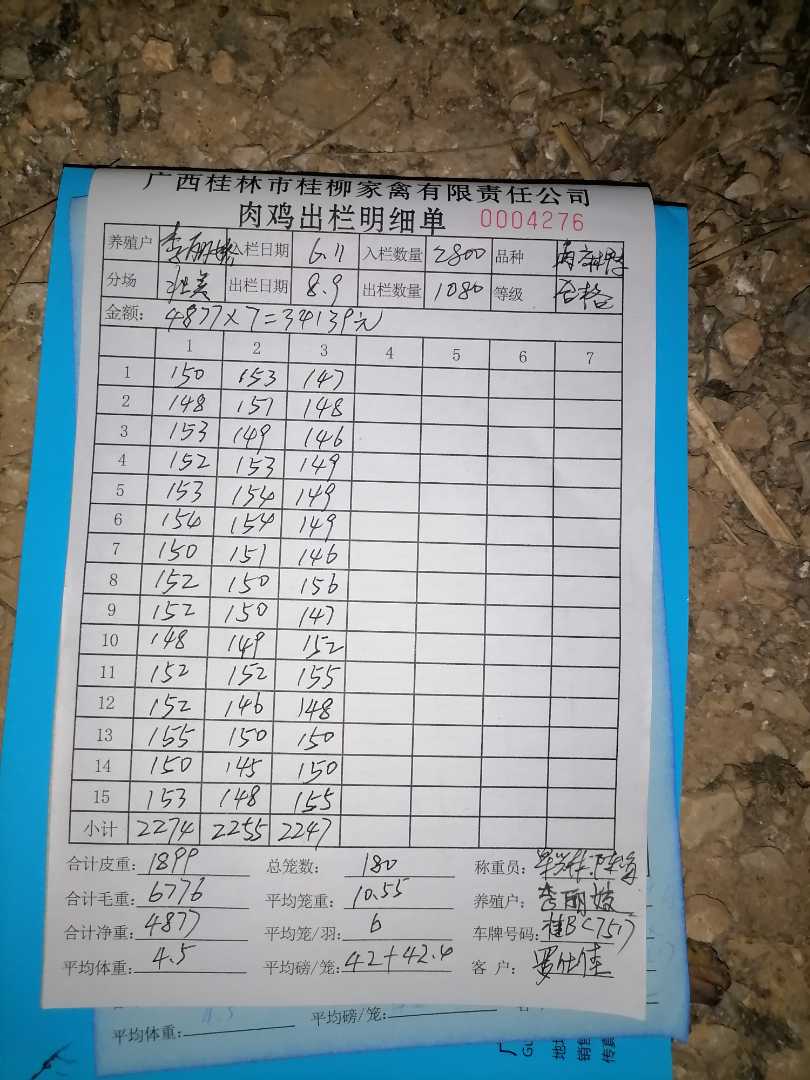 广西桂林市桂柳家禽有限责任公司
肉鸡出栏明细单 0004276
养殖户 李丽 入栏日期 6.11 入栏数量 2800 品种
分场 出栏日期 8.9 出栏数量 1080 等级 合格
金额: 4877×7=34139元
1 2 3 4 5 6 7
1 150 153 147
2 148 151 148
3 153 149 146
4 152 153 149
5 153 154 149
6 154 154 149
7 150 151 146
8 152 150 156
9 152 150 147
10 148 149 152
11 152 152 155
12 152 146 148
13 155 150 150
14 150 145 150
15 153 148 155
小计 2274 2255 2247
合计皮重: 1899 总笼数: 180 称重员:
合计毛重: 6776 平均笼重: 10.55 养殖户: 李丽
合计净重: 4877 平均笼/羽: 6 车牌号码: 桂B
平均体重: 4.5 平均磅/笼: 42+42.4 客 户: 罗仕佳
平均体重: 4.5 平均磅/笼: